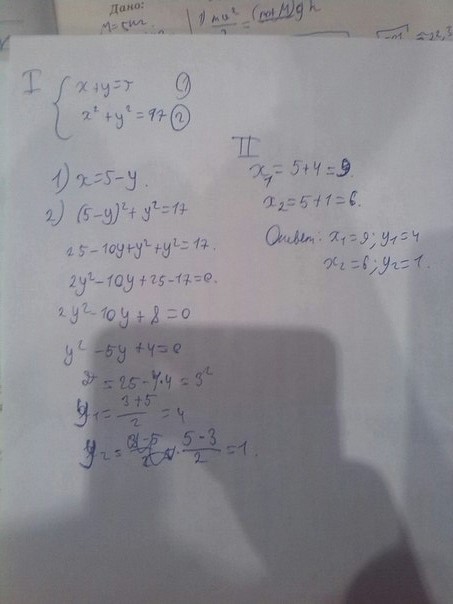 Дано:
M=5кг.
I
x+y=5 ①
x²+y²=97 ②
1) x=5-y.
2) (5-y)²+y²=17
25-10y+y²+y²=17.
2y²-10y+25-17=0.
2y²-10y+8=0
y²-5y+4=0
D=25-4·4=3²
y₁=(3+5)/2=4
y₂= (5-3)/2=1.
II
x₁=5+4=9.
x₂=5+1=6.
Ответ: x₁=9; y₁=4
x₂=6; y₂=1.